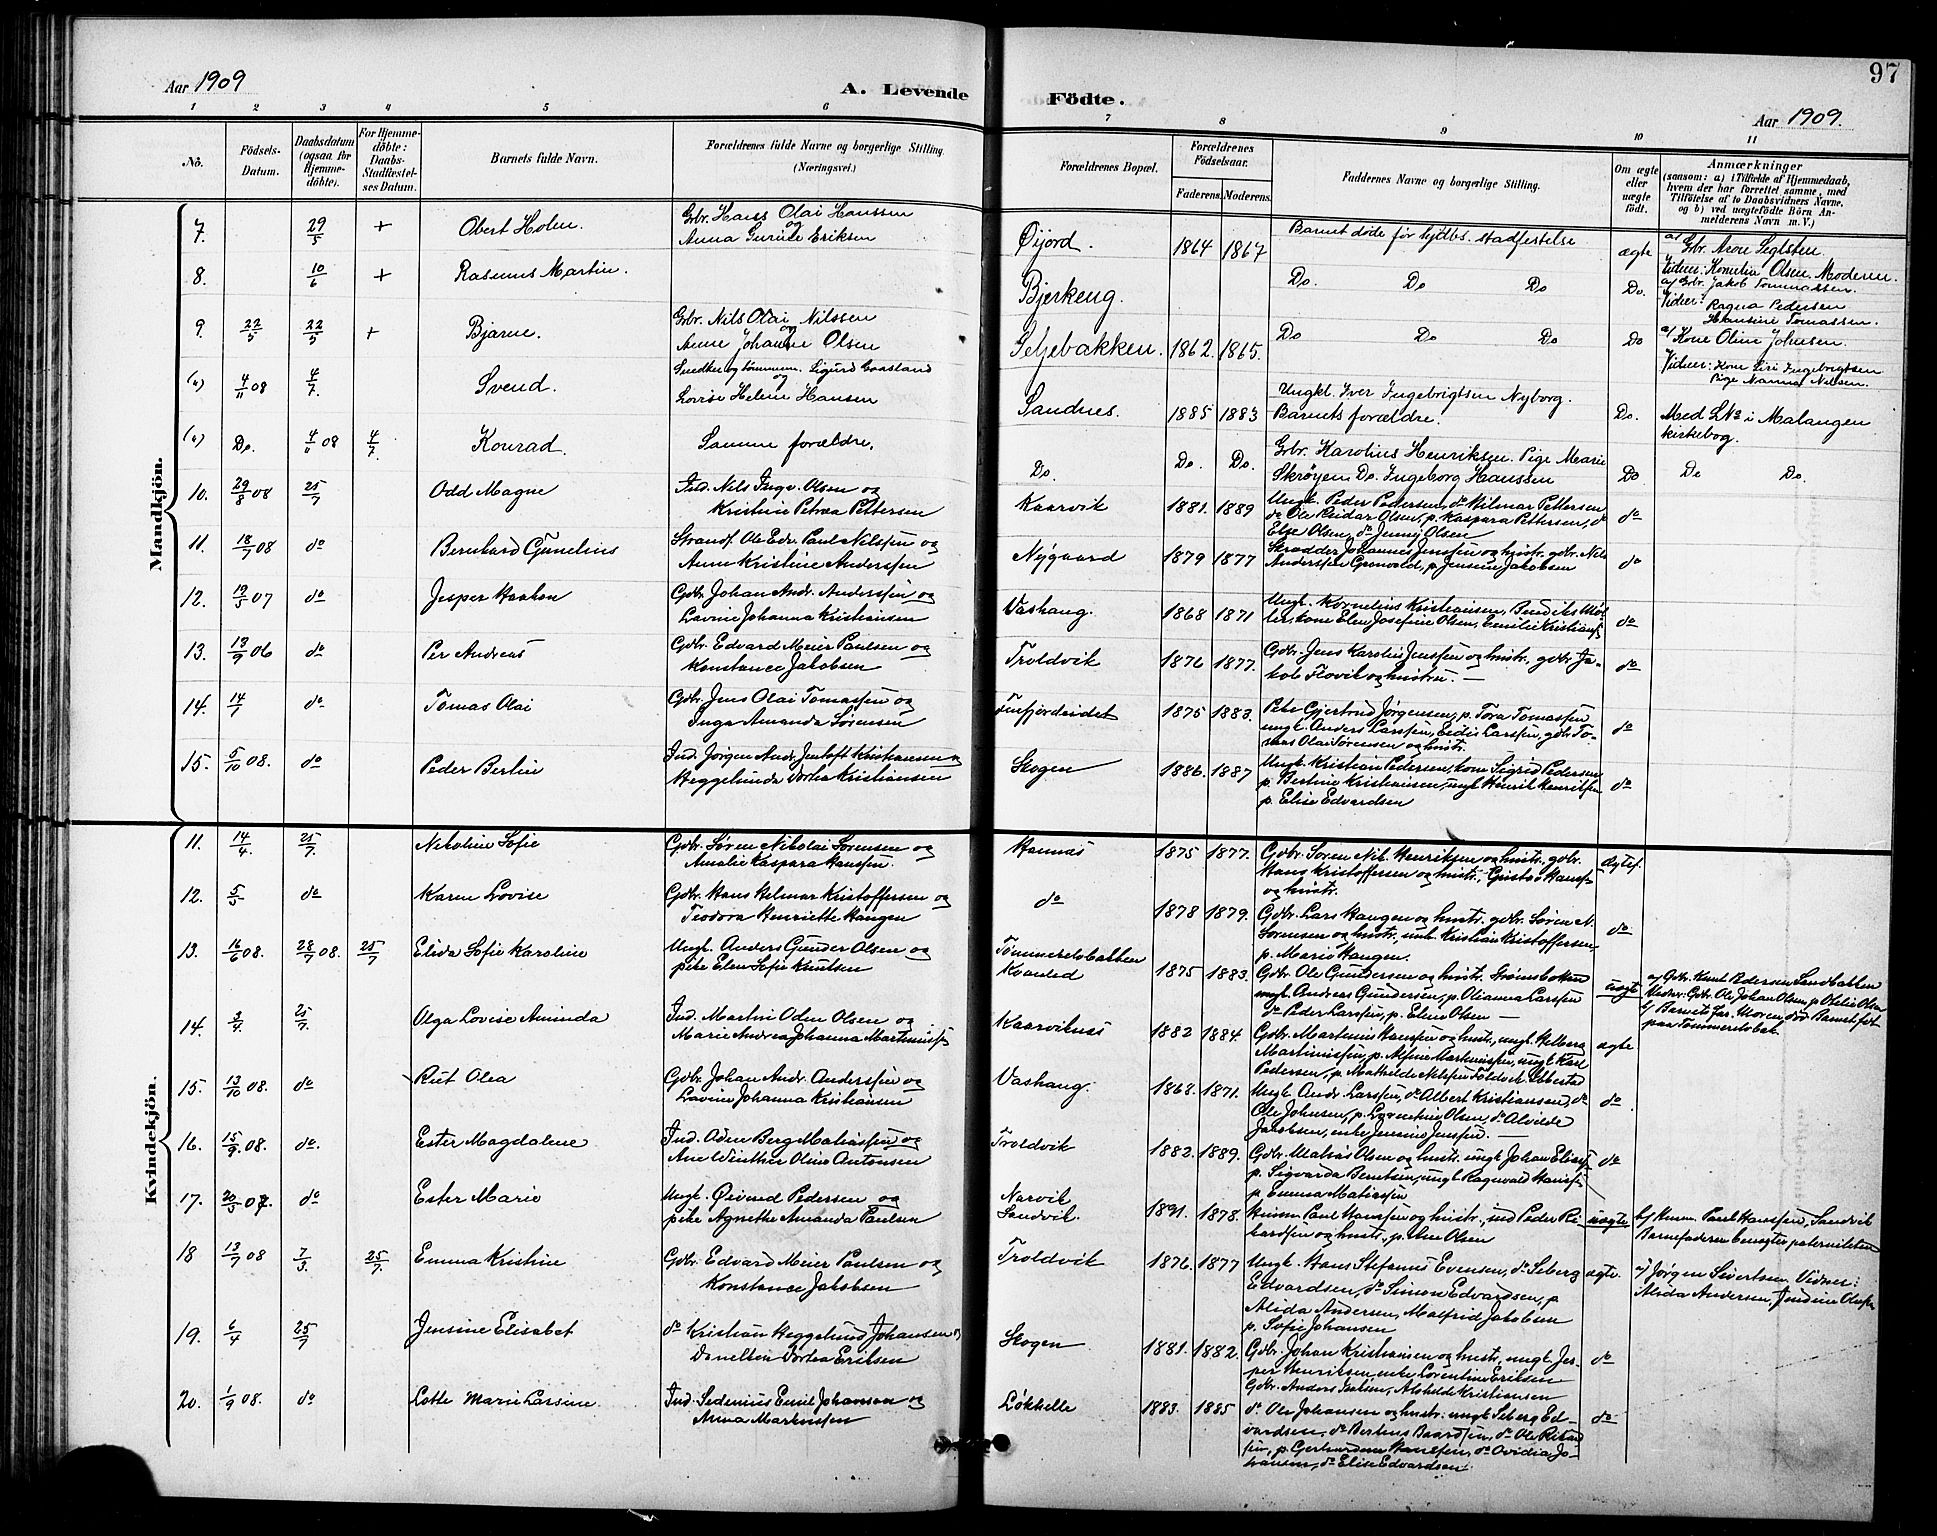 97
Aar 1909
A. Levende
Födte.
Aar 1909.
1 2 3 4 5 6 7 8 9 10 11
No.
Födsels-Datum.
Daabsdatum (ogsaa for Hjemme-döbte).
For Hjemme-döbte: Daabs-Stadfæstel-ses Datum.
Barnets fulde Navn.
Forældrenes fulde Navne og borgerlige Stilling. (Næringsvei.)
Forældrenes Bopæl.
Forældrenes Födselsaar.
Faderens. Moderens.
Faddernes Navne og borgerlige Stilling.
Om ægte eller uægte födt.
Anmærkninger
(saasom: a) i Tilfælde af Hjemmedaab, hvem der har forrettet samme, med Tilföielse af to Daabsvidners Navne, og b) ved uægtefödte Börn Anmelderens Navn m. V.)
Mandkjön.
7. 29/5 + Obert Holm. Gbr. Hans Olai Hanssen og Anna Gurine Eriksen Øijord. 1864 1867 Barnet døde før Hjdbs. stadfestelse ægte
8. 10/6 + Rasmus Martin. Bjerkeng. Do. Do Do Do.
9. 22/5 22/5 + Bjarne. Gbr. Nils Olai Nilssen og Anne Johanne Olsen Seljebakken. 1862. 1865. Do Do Do Do a/ Kone Oline Johnsen.
(4) 4/11 08 4/7. Svend. Sigurd Gaasland og Lovise Helene Hansen Sandnes. 1885 1883 Ungkl. Iver Ingebrigtsen Nyborg. Barnets forældre. Do. Med LNo i Malangen kirkebog.
Do. 08 4/7. Konrad. Samme forældre. Do. Do. Do. Gbr. Karolius Henriksen. Pige Marie Skrøyen. Do. Ingeborg Hanssen Do Do Do.
10. 29/8 08 25/7 Odd Magne Ind. Nils Ingv. Olsen og Kristine Petrea Pettersen Kaarvik 1881. 1889 Ungk. Peder Pedersen, do Hilmar Pettersen do Ole Reidar Olsen, p. Kaspara Pettersen, do Else Olsen, do Jenny Olsen do
11. 18/7 08 do Bernhard Gunelius Strands. Ole Edv. Paul Nilssen og Anne Kristine Anderssen Nygaard 1879 1877 Skrædder Johannes Jenssen og hustr. gdbr. Nils Anderssen Grunvold, p. Jensine Jakobsen do
12. 19/5 07 do Jesper Haakon Gdbr. Johan Andr. Anderssen og Lavine Johanna Kristiansen Vashaug. 1868 1871 Ungk. Kornelius Kristiansen, kone Elen Josefine Olsen, Emilie Kristians. do
13. 13/9 06 do Per Andreas Gdbr. Edvard Meier Paulsen og Konstance Jakobsen Troldvik 1876 1877. Gdbr. Jens Karolius Jenssen og hustr. gdbr. Jakob Flovik og hustru. — do
14. 14/7 do Tomas Olai Gdbr. Jens Olai Tomassen og Inga Amanda Sørensen Finfjordeidet 1875 1883. Pike Gjertrud Jørgensen, p. Tora Tomassen ungk. Anders Larssen, Eidis Larssen, gdb. Tomas Olai Sørensen og hustr. do
15. 5/10 08. do Peder Bertin Ind. Jørgen Andr. Jentoft Kristiansen og Heggelunda Dortea Kristiansen Skogen 1886. 1887 Ungk. Kristian Pedersen, kone Sigrid Pedersen, p. Bertine Kristiansen, ungk. Henrik Henriksen p. Elise Edvardsen do
Kvindekjön.
11. 14/4 25/7. Nikoline Sofie Gdbr. Søren Nikolai Sørensen og Amalie Kaspara Hanssen. Hannas 1875 1877. Gdbr. Søren Nik. Henriksen og hustr. gdbr. Hans Kristoffersen og hustr. og hustr. ægtef.
12. 5/5 do Karen Lovise Gdbr. Hans Helmar Kristoffersen og Teodora Henriette Haugen do 1878 1879. Gdbr. Lars Haugen og hustr. gdbr. Søren N. Sørensen og hustr., unk. Kristian Kristoffersen, p. Marie Haugen. do
13. 16/6 08. 28/7 08. 25/7 Elida Sofie Karoline Ungk. Anders Gunder Olsen og pike Elen Sofie Knutsen Tømmerelvbakken Kvanlid 1875 1883. Gdbr. Ole Gundersen og hustr. Strømsbotten ungk. Andreas Gundersen, p. Olianna Larssen do Peder Larssen, p. Eline Olsen — uægte a/ Gdbr. Knut Pedersen Sandbakken Vidner: Gdbr. Ole Johan Olsen, p. Otelie Olsen
14. 3/4. 25/7. Olga Lovise Aminda Ind. Martin Oden Olsen og Marie Andrea Johanna Martiniuss. Kaarviknes 1882 1884. Gdbr. Martinius Hanssen og hustr. ungk. Helberg Martiniussen, p. Alfine Martiniussen, ungk. Karl Pedersen, p. Mathilde Nilssen Foldvik Ibbestad ægte
15. 13/10 08. do Rut Olea Gdbr. Johan Andr. Anderssen og Lavine Johanna Kristiansen Vashaug. 1868. 1871. Ungk. Andr. Larssen, do Albert Kristianssen, do Ole Johnsen, p. Lornetine Olsen, do Alvilde Jakobsen, enke Jensine Jenssen. — do
16. 15/9. 08. do. Ester Magdalene Ind. Oden Berg Matiassen og Ane Winther Oline Antonsen Troldvik 1882. 1889. Gdbr. Matias Olsen og hustr. ungk. Johan Eliass. p. Sigvarda Berntsen, ungk. Ragnvald Hanssen p. Emma Matiassen do
17. 20/5 07. do Ester Marie Ungk. Øivind Pedersen og pike Agnethe Amanda Paulsen Narvik Sandvik. 1891. 1878. Husm. Paul Hanssen og hustr., ind. Peder Rikardsen og hustr., p. Ane Olsen uægte b/ Husm. Paul Hanssen, Sandvik Barnefaderen benegter paterniteten
18 13/7 08 7/3. 25/7. Emma Kristine Gdbr. Edvard Meier Paulsen og Konstance Jakobsen Troldvik 1876. 1877 Ungk. Hans Stefanus Evensen, do Seberg Edvardsen, do Simon Edvardsen, p Alida Andersen, Malfrid Jakobsen p. Sofie Johansen ægte. a/ Jørgen Sivertsen. Vidner: Alida Andersen, Jendine Olufs.
19. 6/4 25/7 Jensine Elisabet do Kristian Heggelund Johansen og Danelsen Dortea Eriksen Skogen 1881. 1882. Gdbr. Johan Kristiansen og hustr. ungk. Jesper Henriksen, enke Lorentine Eriksen Gdbr. Anders Isaksen, Alethilde Kristiansen do
20. 1/9 08. do Lotte Marie Larsine Ind. Sedenius Emil Johansen og Anna Martinssen Løkhelle 1883. 1885 do. Ole Johansen og hustr. ungk. Seberg Edvardsen, do Bertens Baardsen, do Ole Rikardsen, p. Gerhardine Hanssen, do Ovidia Johansen, do Elise Edvardsen do